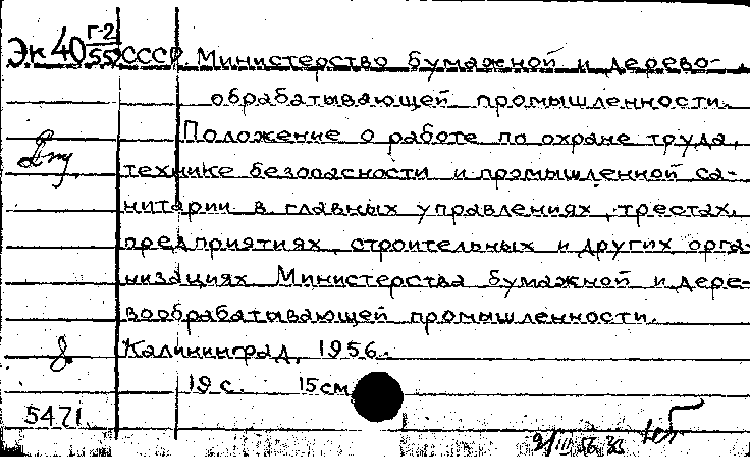 Эк 40 Г-2/55 СССР. Министерство бумажной и дерево-
обрабатывающей промышленности.
Положение о работе по охране труда,
технике безопасности и промышленной са-
нитарии в главных управлениях, трестах,
предприятиях, строительных и других орга-
низациях Министерства бумажной и дере-
вообрабатывающей промышленности.
Калининград, 1956.
19 с. 15 см
5471